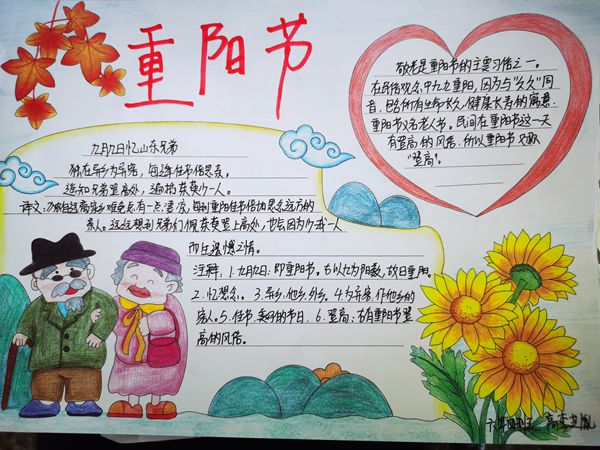 重阳节
敬老是重阳节的主要习俗之一。
在民俗观念中九九重阳，因为与"久久"同
音，包含有生命长久、健康长寿的寓意，
重阳节又名老人节。民间在重阳这一天
有登高的风俗，所以重阳节又叫
"登高"。
九月九日忆山东兄弟
独在异乡为异客，每逢佳节倍思亲。
遥知兄弟登高处，遍插茱萸少一人。
译文：
难免有一点凄凉，每到重阳佳节倍加思念远方的
亲人。远远想到兄弟们佩茱萸登上高处，也会因为少我一人
而生遗憾之情。
注释：1.九月九日：即重阳节。古以九为阳数，故曰重阳。
2.忆想念。3.异乡：他乡、外乡。4.为异客：作他乡的
客人。5.佳节：美好的节日。6.登高：古有重阳节登
高的风俗。